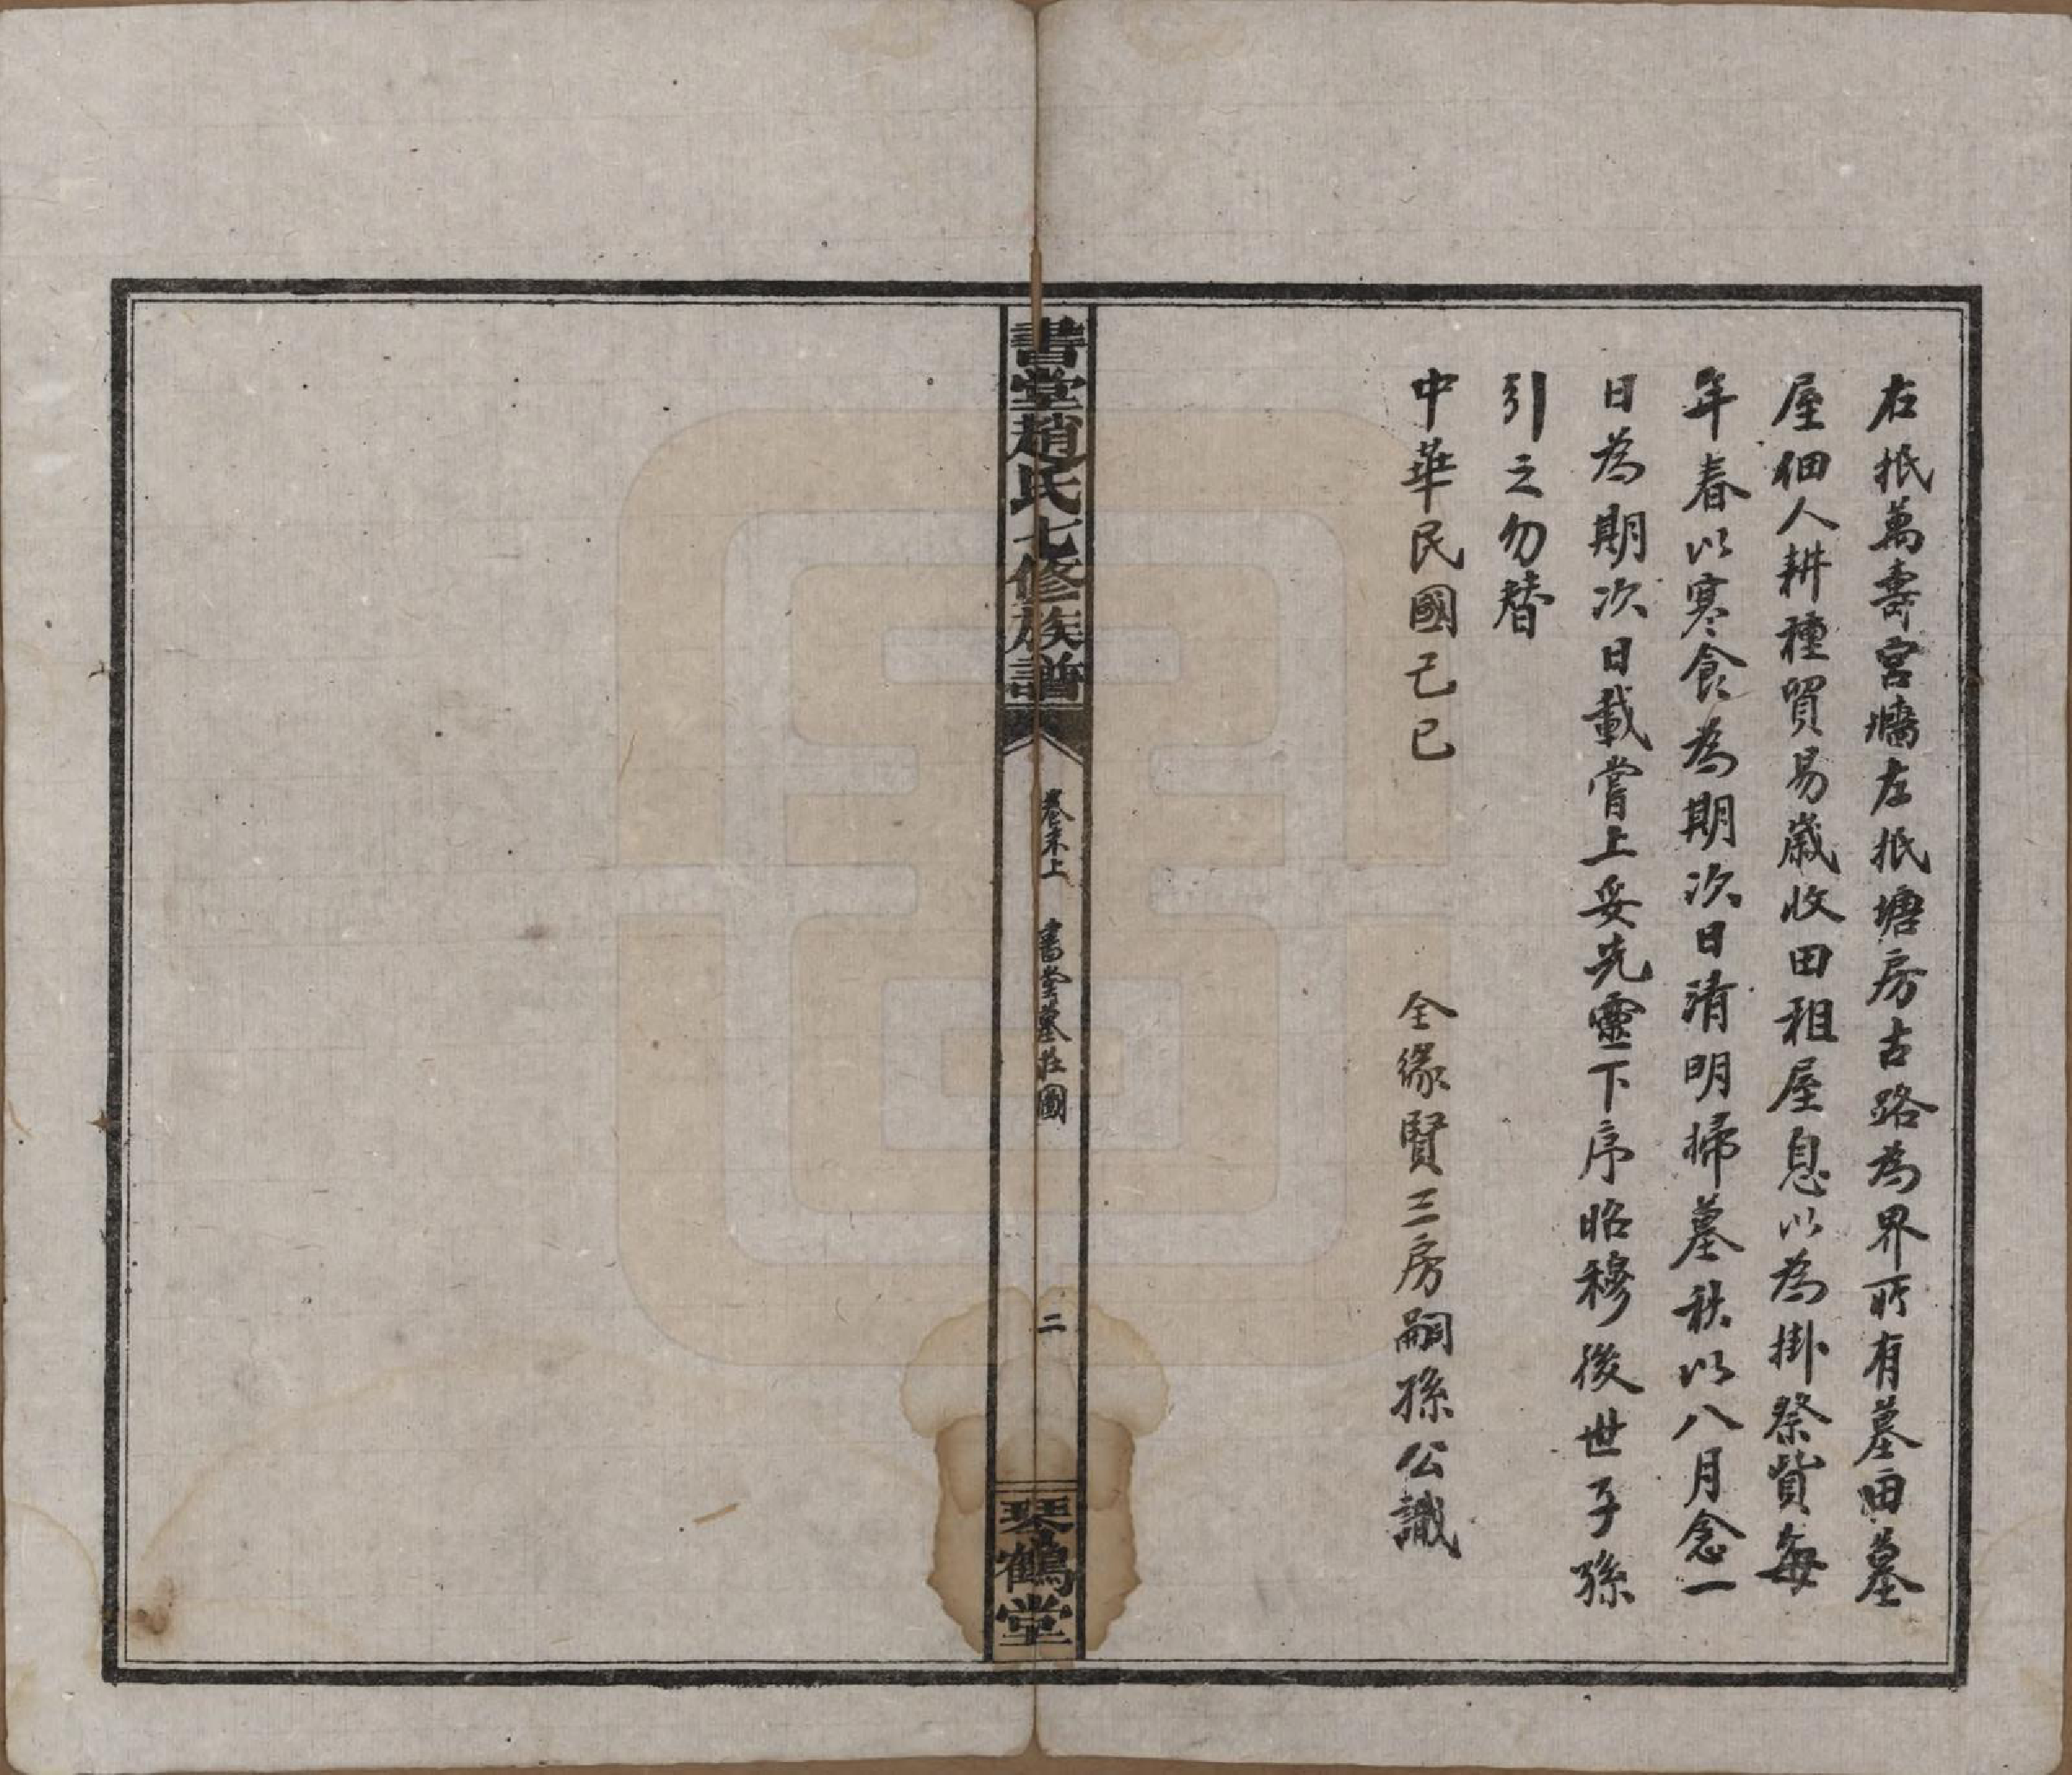 右抵萬壽宮墻左抵塘房古路為界所有墓田墓
屋佃人耕種貿易歲收田租屋息以為掛祭貲每
年春以寒食為期次日清明掃墓秋以八月念一
日為期次日載嘗上妥先靈下序昭穆後世子孫
引之勿替
中華民國己巳 全緣賢三房嗣孫公識
書堂趙氏七修族譜 卷末上 書堂墓莊圖 二 琴鶴堂